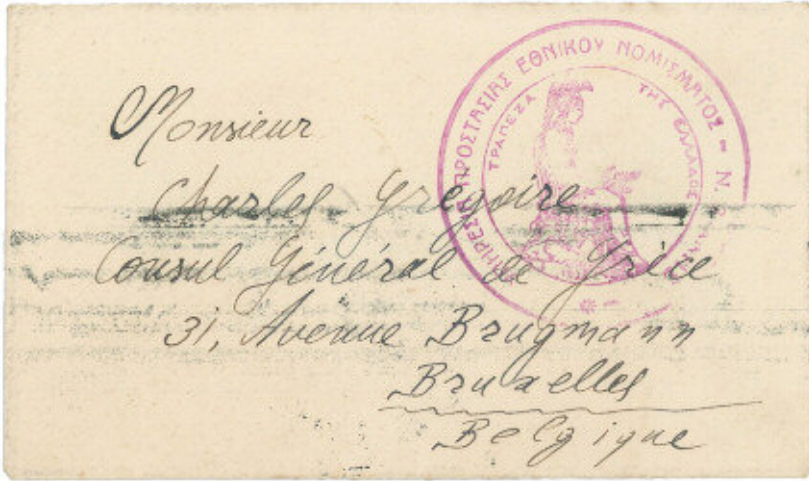 Monsieur
Charles Grégoire
Consul Général de Grèce
31, Avenue Brugmann
Bruxelles
Belgique
ΠΡΟΣΤΑΣΙΑΣ ΕΘΝΙΚΟΥ ΝΟΜΙΣΜΑΤΟΣ - Ν.
ΤΡΑΠΕΖΑ ΤΗΣ ΕΛΛΑΔΟΣ